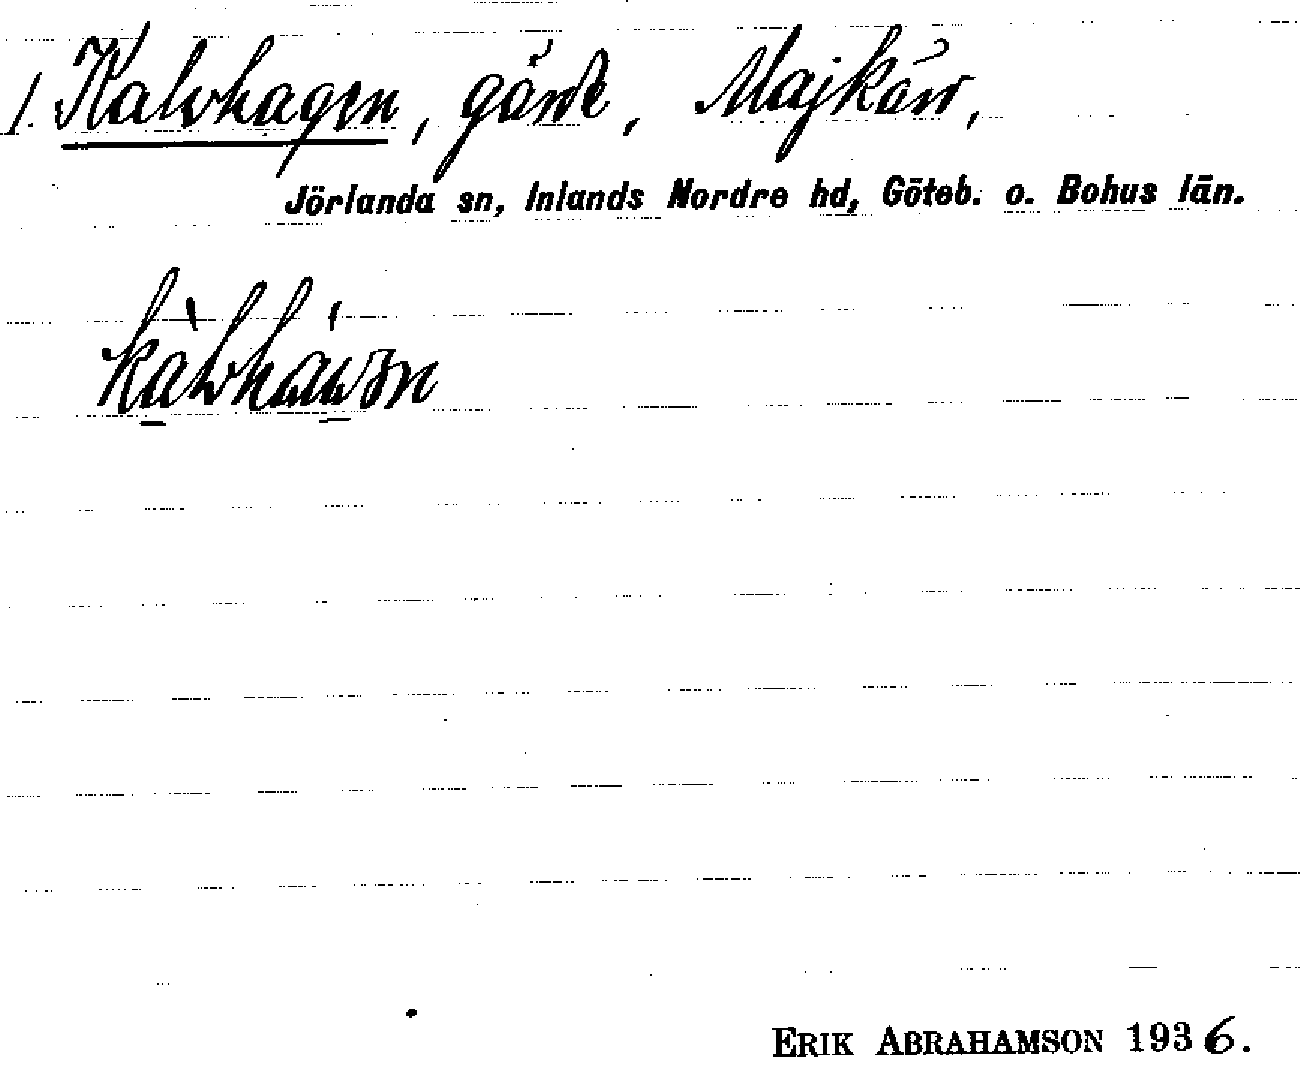 1. Kalvhagen, gärde, Majkärr,
Jörlanda sn, Inlands Nordre hd, Göteb. o. Bohus län.
ERIK ABRAHAMSON 1936.